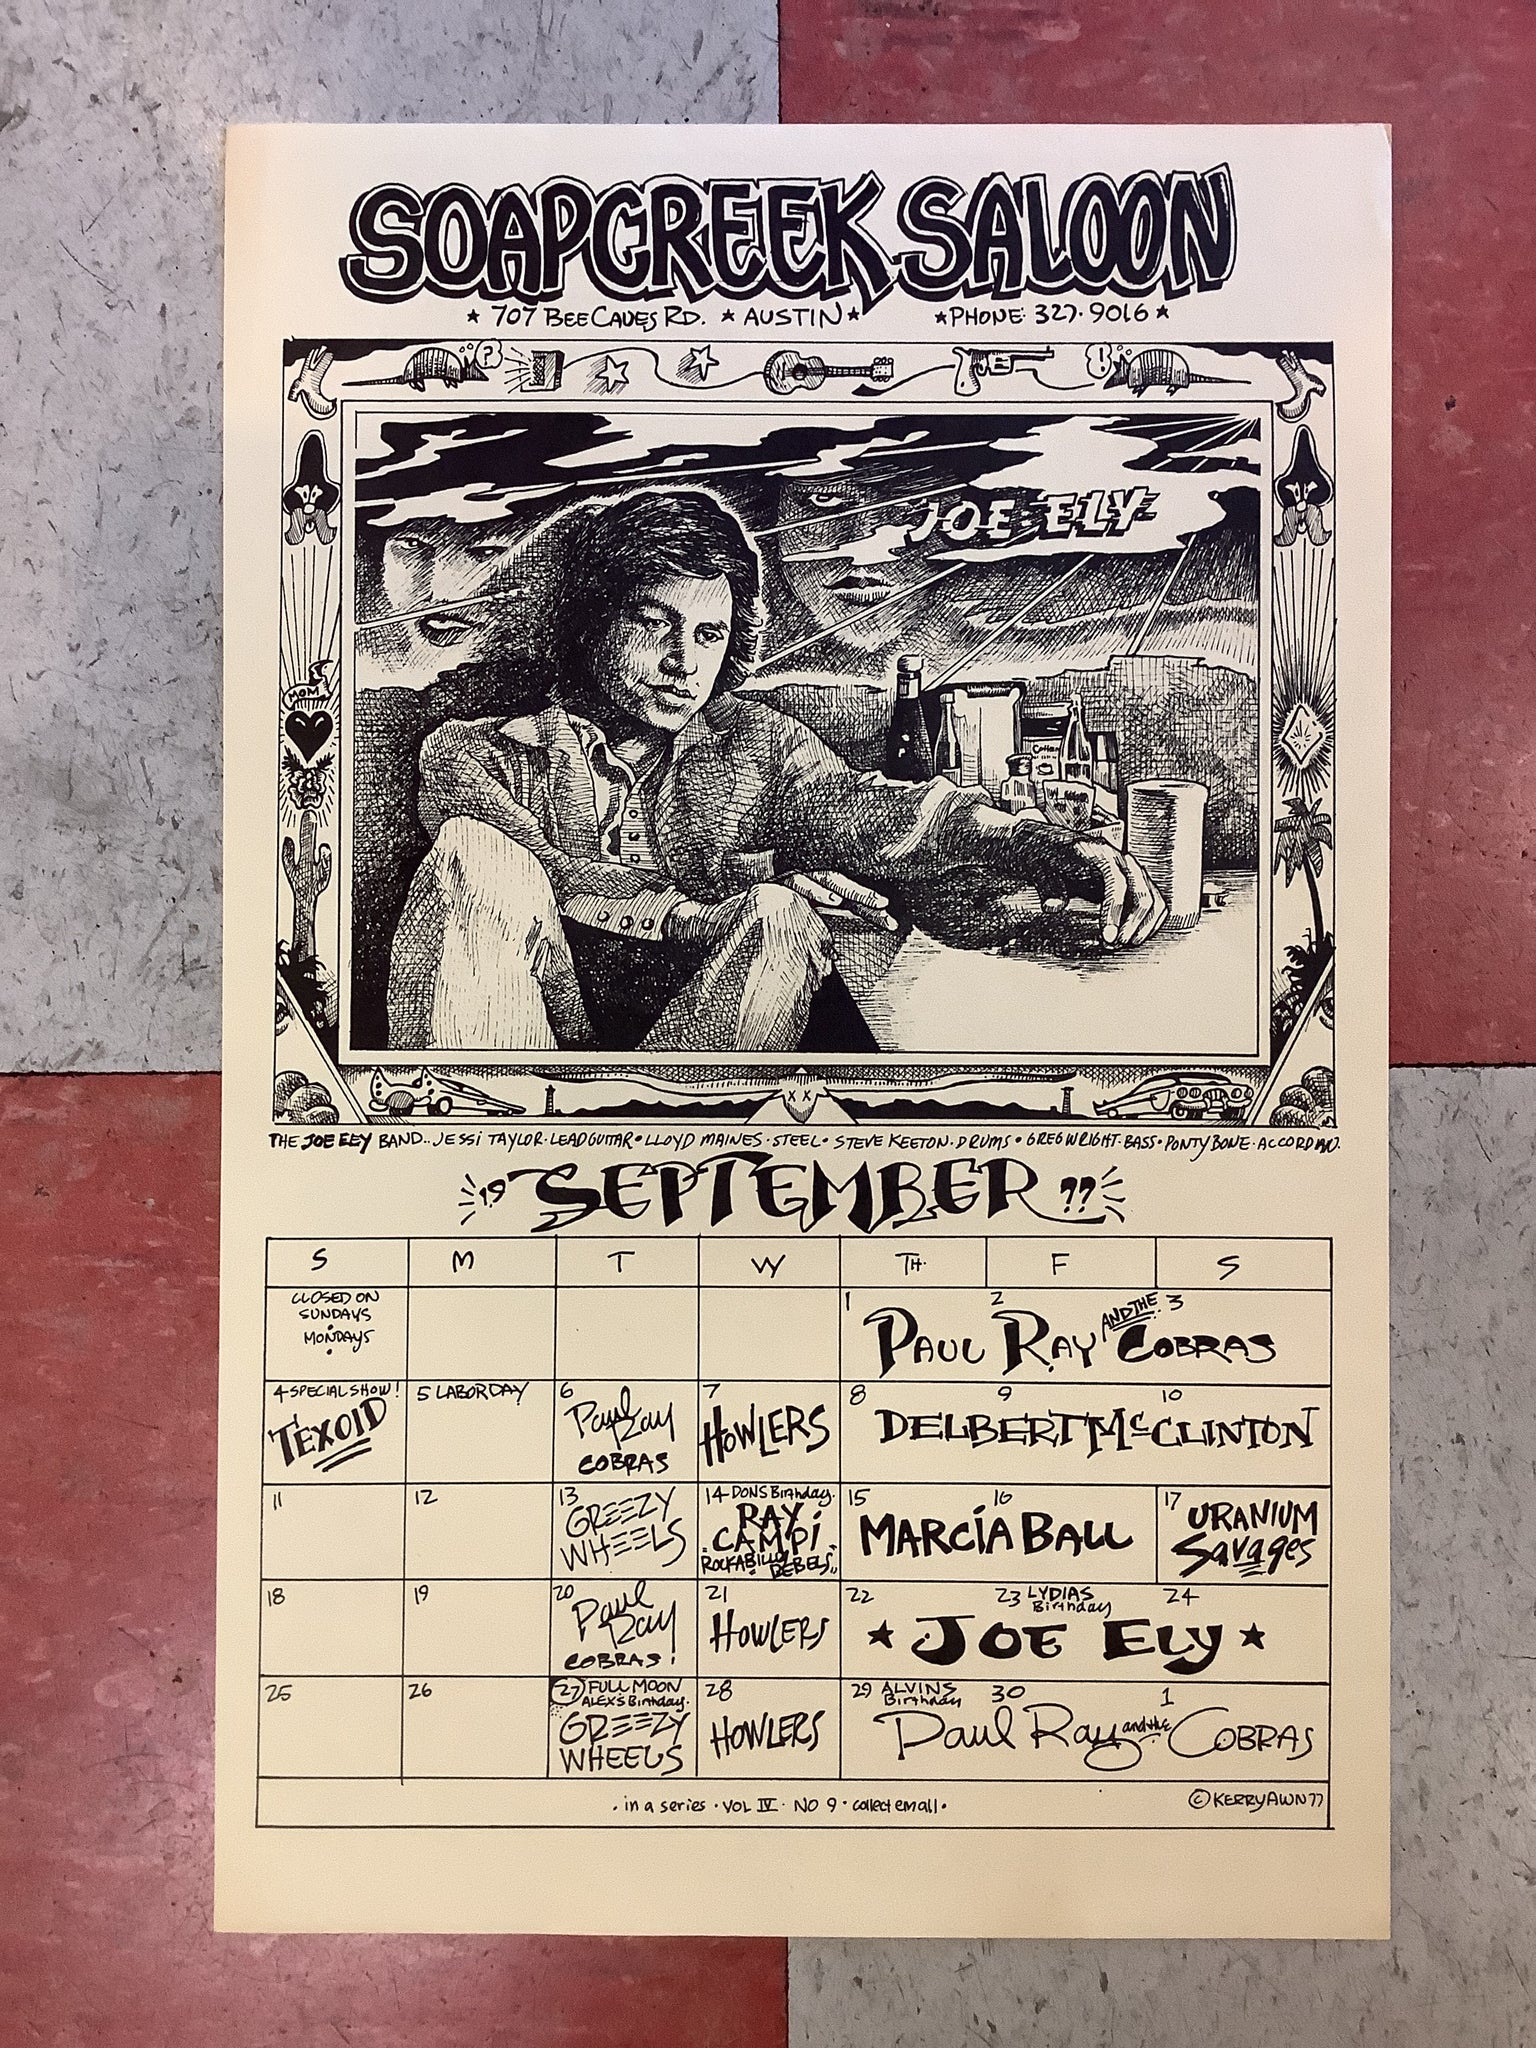 SOAPCREEK SALOON
★ 707 BEE CAVES RD. ★ AUSTIN ★ ★ PHONE: 327.9016 ★
?
!
JOE ELY
MOM
Coffee
X X
THE JOE ELY BAND.. JESSI TAYLOR · LEAD GUITAR • LLOYD MAINES · STEEL • STEVE KEETON · DRUMS • GREG WRIGHT · BASS • PONTY BONE · ACCORDIAN.
19 SEPTEMBER 77
S M T W TH. F S
CLOSED ON
SUNDAYS
MONDAYS
1 2 3
PAUL RAY AND THE COBRAS
4 SPECIAL SHOW!
TEXOID
5 LABOR DAY
6
Paul Ray
COBRAS
7
HOWLERS
8 9 10
DELBERT McCLINTON
11
12
13
GREEZY
WHEELS
14 DONS Birthday.
RAY
CAMPI
ROCKABILLY
REBELS
15 16
MARCIA BALL
17 URANIUM
Savages
18
19
20
Paul
Ray
COBRAS!
21
HOWLERS
22 23 LYDIAS Birthday 24
★ JOE ELY ★
25
26
27 FULL MOON
ALEX'S Birthday.
GREEZY
WHEELS
28
HOWLERS
29 ALVINS Birthday 30 1
Paul Ray and the COBRAS
. in a series · VOL IV · NO 9 · collect em all ·
© KERRY AWN 77